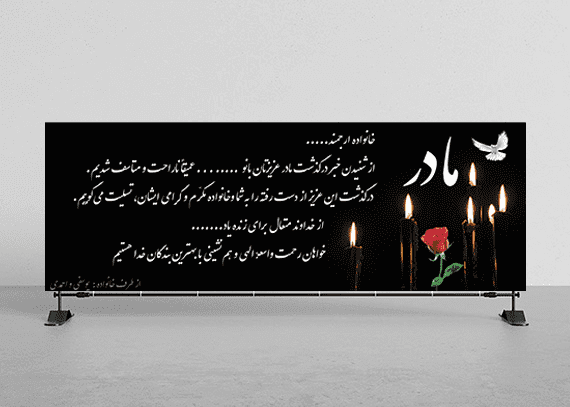 مادر
خانواده ارجمند.....
از شنیدن خبر درگذشت مادر عزیزتان بانو ........ عمیقاً ناراحت و متاسف شدیم.
درگذشت این عزیز از دست رفته را به شما و خانواده مکرم و گرامی ایشان، تسلیت می گوییم.
از خداوند متعال برای زنده یاد.......
خواهان رحمت واسعه الهی و هم نشینی با بهترین بندگان خدا هستیم
از طرف خانواده: یوسفی و احمدی